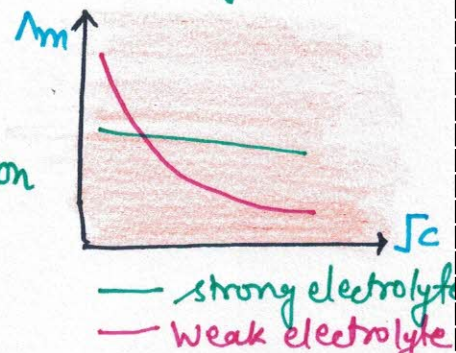 Λm
on
√c
— strong electrolyte
— Weak electrolyte